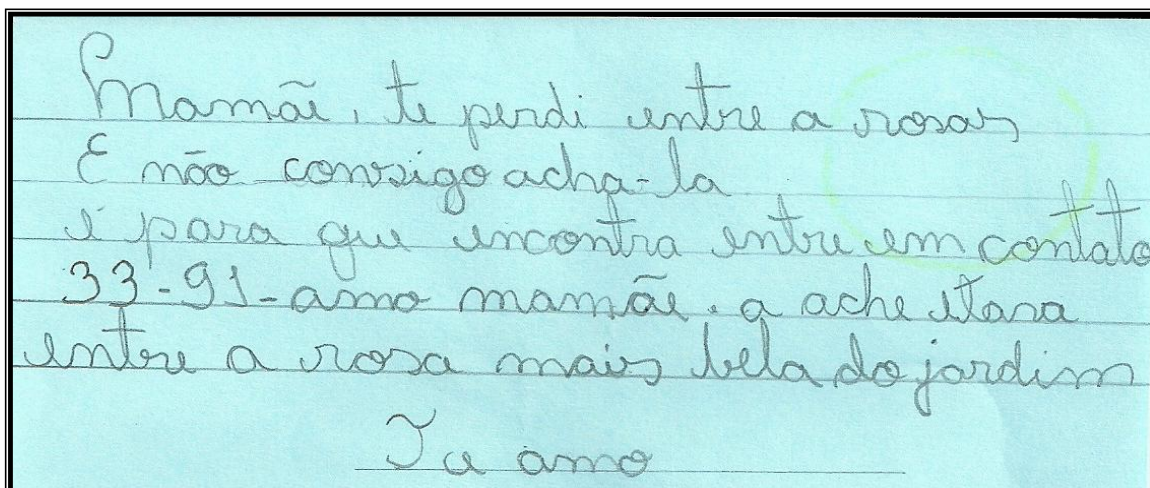 Mamãe, te perdi entre a rosas
E não consigo acha-la
é para que encontra entre em contato
33-91-amo mamãe. a ache etara
entre a rosa mais bela do jardim
Te amo